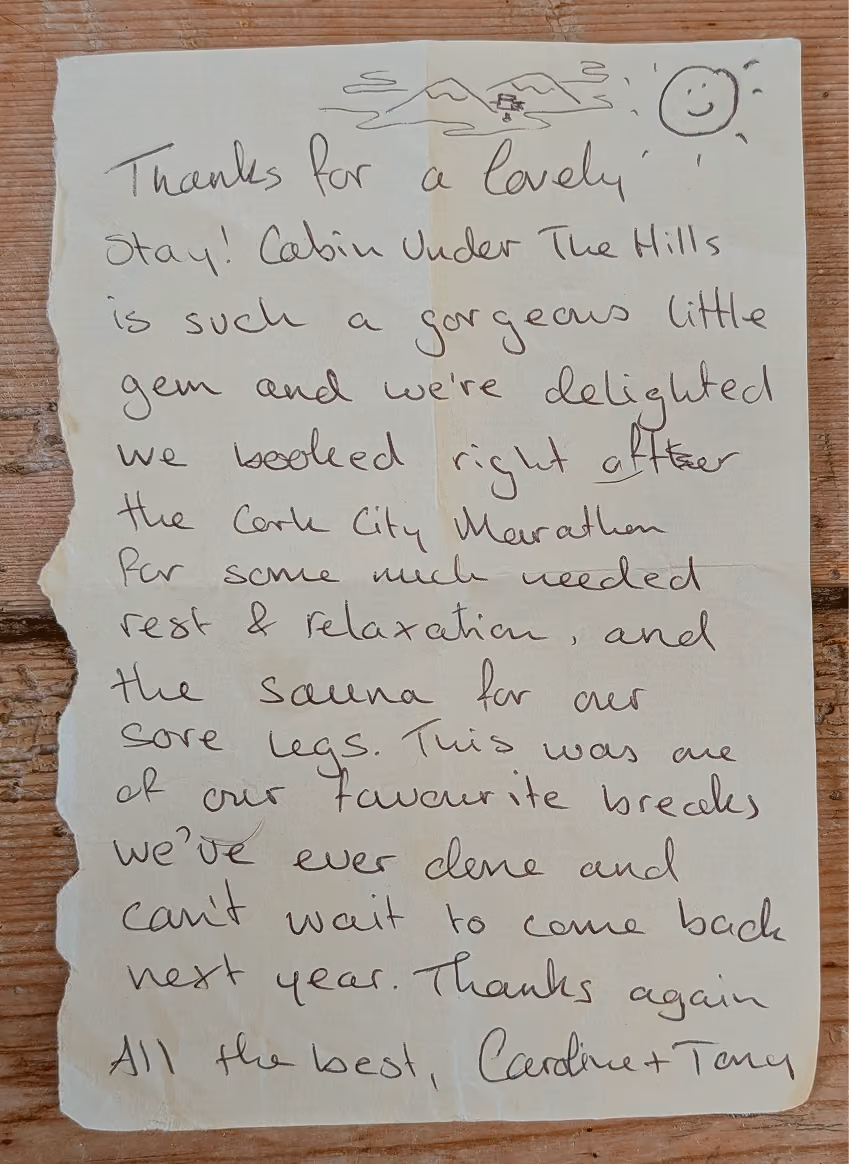 Thanks for a lovely
Stay! Cabin Under The Hills
is such a gorgeous little
gem and we're delighted
we booked right after
the Cork City Marathon
for some much needed
rest & relaxation, and
the sauna for our
sore legs. This was one
of our favourite breaks
we've ever done and
can't wait to come back
next year. Thanks again
All the best, Caroline + Tony